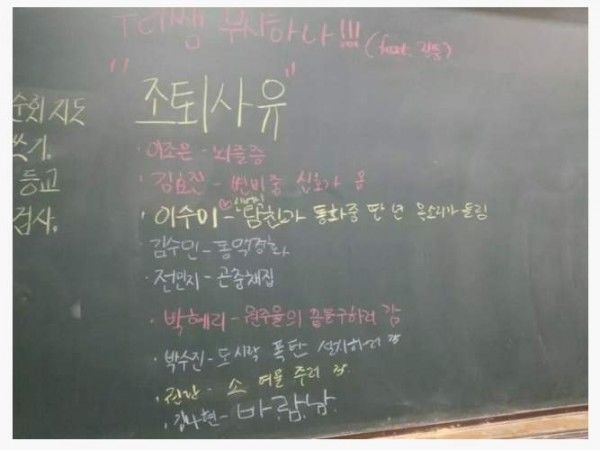 무사하나!!! (feat.
"조퇴사유"
순회지도
쓰기.
등교
검사.
· 이조은 - 뇌졸증
· 김효진 - 변비중 신호가 옴
· 이수미 - 남친과 통화중 딴 년 목소리가 들림
· 김수인 - 동맥경화
· 전민지 - 곤충채집
· 박혜리 - 원주율의 끝을 구하러 감
· 박수진 - 도시락 폭탄 설치하러 감
· 소 여물 주러 감
· 김나현 - 바람남